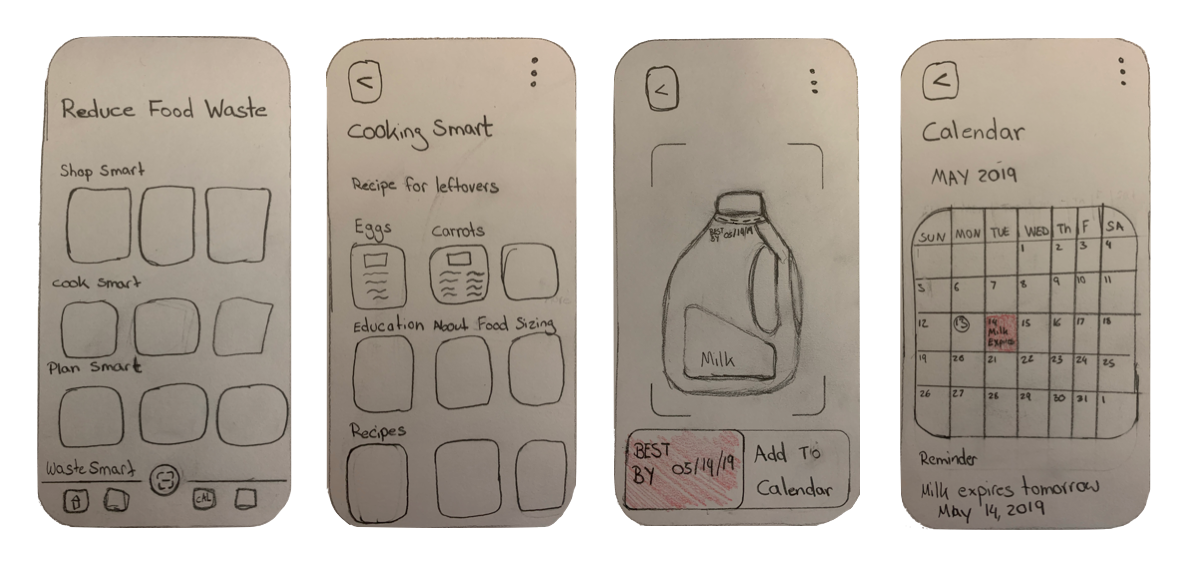 Reduce Food Waste
Shop Smart
Cook Smart
Plan Smart
Waste Smart
CAL
<
Cooking Smart
Recipe for leftovers
Eggs
Carrots
Education About Food Sizing
Recipes
<
BEST
BY 05/14/19
Milk
BEST
BY 05/14/19
Add To
Calendar
<
Calendar
MAY 2019
SUN MON TUE WED Th F SA
1 2 3 4
5 6 7 8 9 10 11
12 13 14 15 16 17 18
Milk
Expires
19 20 21 22 23 24 25
26 27 28 29 30 31 1
Reminder
Milk expires tomorrow
May 14, 2019